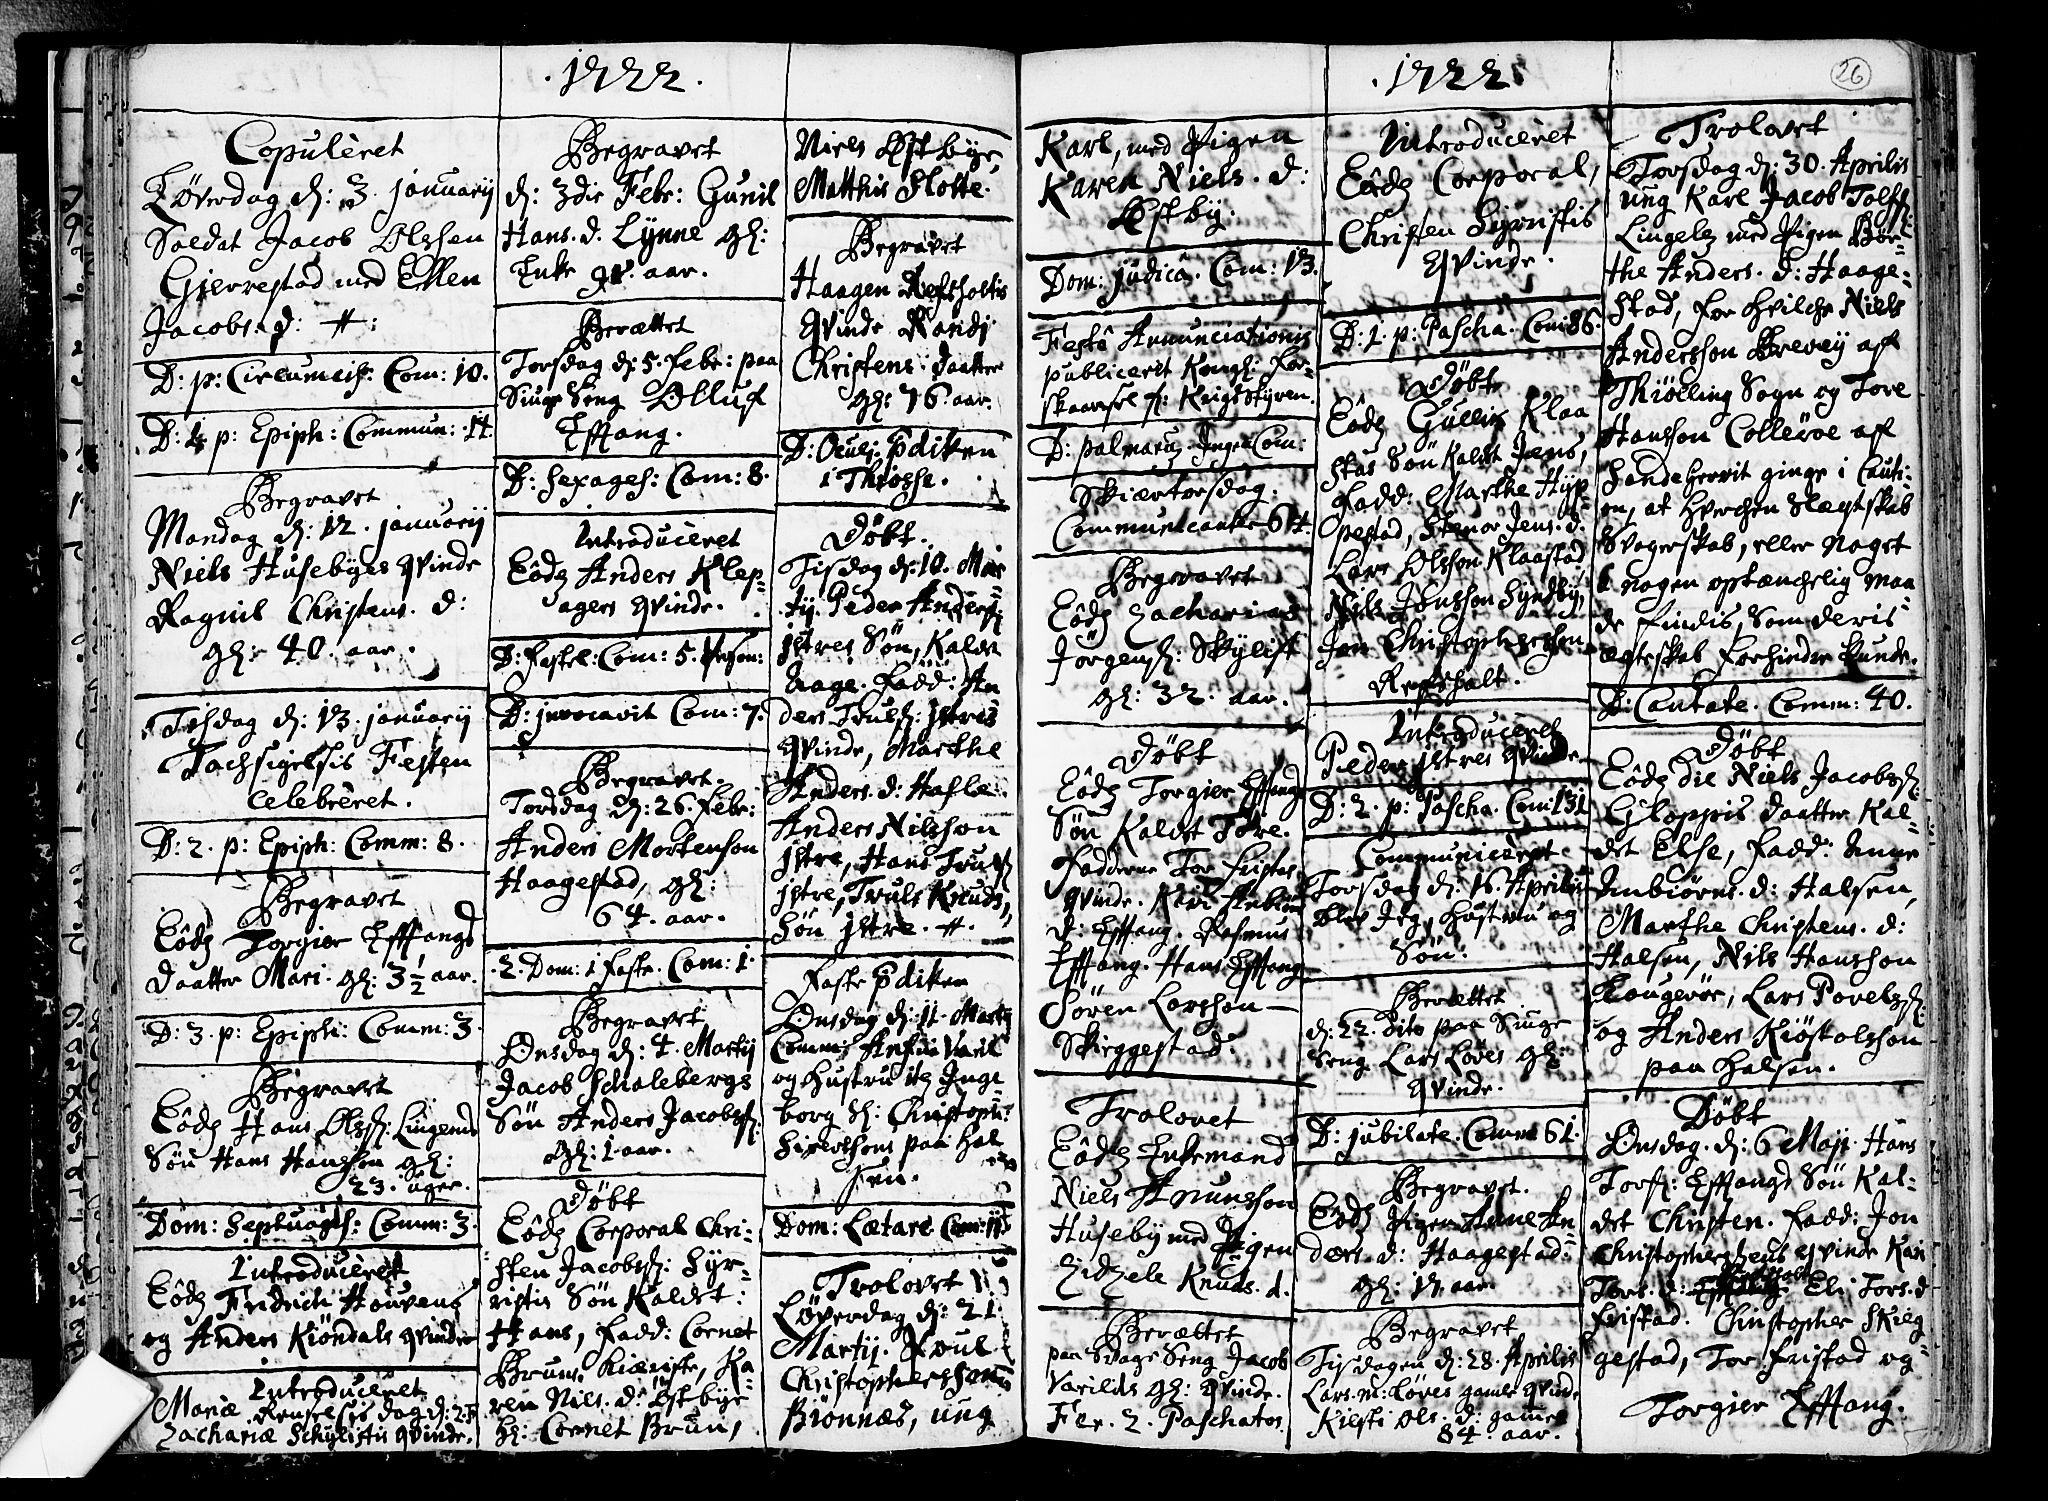 . 1722 .
Copulèret
Løverdag d: 3. januarij
Soldat Jacob Olssen
Gierrestad med Ellen
Jacobs. d: #:
D: p: Circumcis: Com: 10.
D: 1 p: Epiph: Commun: 14.
Begravet
Mandag d: 12. januarij
Niels Husebyes qvinde
Ragnil Christens. d:
gl: 40. aar.
Tisdag d: 13. januarij
Tachsigelsis Festen
Celebrèret.
D: 2. p: Epiph: Comm: 8.
Begravet
Eôd Torgier Efftangs
Daatter Mari. gl: 3 1/2 aar.
D: 3. p: Epiph: Comm: 3.
Begravet
Eôd Hans Olss: Lingums
Søn Hans Hanssen gl:
23. uger.
Dom: Septuages: Comm: 3.
Introducèret
Eôd Fridrich Houvens
og Anders Kiøndals qvinder
Introducèret
Mariæ Renselses dag d: 2. F
Zachariæ Schylistis qvinde.
Begravet
d: 3die Febr: Gunil
Hans. d. Lynne gl:
Enke 91. aar.
Berættet
Torsdag d: 5. Febr: paa
Siuge Seng Olluf
Efftang.
D: Sexages: Com: 8.
Introducèret
Eôd Anders Klep-
agers qvinde.
D: Fastel: Com: 5. Person:
D: jnvocavit Com: 7.
Begravet.
Torsdag d: 26. Febr:
Anders Mortenson
Haagestad, gl:
64. aar.
2. Dom: i Faste. Com: 1.
Begravet
Onsdag d: 4. Martij
Jacob Schalebergs
Søn Anders Jacobss:
gl: 1 aar.
Døbt
Eôd Corporal Chri-
sten Jacobss: Syr-
ristis Søn Kaldet:
Hans, Fadd: Cornet
Brun, Ka-
ren Niels. d: Østbye
Hr: Cornet Brun,
Niels Østbye,
Matthis Flotte.
Begravet
Haagen Refsholtis
qvinde Randj
Christens. daatter
gl: 76. aar.
D: Oculi: Pdiken
i Thiøsse.
Døbt.
Tisdag d: 10. Mar-
tij. Peder Anderss:
jstres Søn, Kaldet
Aage. Fadd: An
ders Truls: jstres
qvinde, Marthe
Anders. d: Hafle
Anders Nilsson
jstre, Hans Truls
jstre, Truls Knuds,
Søn jstre. #.
Faste Pdiken
Onsdag d: 11. Martij
og Hustru Inge
borg Christoph:
Siverthens paa Hal
sen.
Dom: Lætare Com: 115
Trolovet
Løverdag d: 21.
Martij. Poul
Christophersson
Biønnes, ung
. 1722.
26
Karl, med Pigen
Karen Niels. d:
Østby.
Dom: judica. Com: 13.
Festô Annunciationis
publiceret Kongl: For-
skaansel f: Krigsstyren.
D: palmarum Ingen Com:
Skiærtorsdag.
Communicanter 64.
Begravet
Eôd Zacharias
Jørgens: Skylist
gl: 32. aar.
Døbt
Eôd Torgier Efftangs
Søn Kaldet Tore.
Fadderne Tor Fristas
qvinde. Kari
d: Efftang. Rasmus
Efftang. Hans Efftang
Søren Larsson
Skieggestad.
Trolovet
Eôd Enkemand
Niels Anunsson
Huseby med Pigen
Zidzele Knuds. d.
Berættet
paa Svage Seng Jacob
Varilds gl: qvinde.
Fer. 2. Paschatos.
Introducèret
Eôd Corporal,
Christen Syrristis
qvinde.
D: 1. p: Pascha. Com: 86.
Døbt
Eôd Gullix Klaa
stas Søn Kaldet Jens,
Fadd: Marthe Hyp-
pestad, Stenor Jens. d.
Lars Olsson Klaastad
Niels Jonsson Syndby,
Jan Christophersson
Refsholt.
Introducèret
Peder jstres qvinde
D: 2. p: Pascha. Com: 131
Communicèret
Torsdag d: 16. Aprilis
blev Jeg, Hustru og
Søn.
Berættet
d: 22. dito paa Siuge
Seng Lars Løves gl:
qvinde.
D: jubilate. Comm 61.
Begravet.
Eôd Pigen Anne An-
ders. d: Haagestad.
gl: 17 aar.
Begravet
Tisdagen d: 28. Aprilis
Lars. m: Løves gamle qvinde
Kirsti Ols. d: gammel
84. aar.
Trolovet
Torsdag d: 30. Aprilis
ung Karl Jacob Tolffs:
Lingelem med Pigen Bør-
the Anders. d: Haage-
stad, for Hvilche Niels
Andersson Brevig af
Thiølling Sogn og Tore
Hansson Collerøe af
Sandeherrit ginge i Cauti-
on, at Hverchen Slegtskab
Svogerskab, eller Noget
i nogen optænchelig maa
de findis, som deris
ægteskab forhindre kunde.
D: Cantate. Comm: 40.
Døbt
Eôd die Niels Jacobss:
Gloppis Daatter Kal-
det Else, Fadd: Anne
Imbiørns. d: Halsen,
Marthe Christens. d:
Halsen, Nils Hansson
Rougerøe, Lars Povelss:
og Anders Kiøstolsson
paa Halsen.
Døbt
Onsdag. d: 6 Maji. Hans
Torss: Efftangs Søn Kal-
det Christen. Fadd: Jon
Christophersens qvinde Kari
Tors. d: Eli Tors. d
Fristad. Christopher Skieg
gestad, Tor Fristad og
Torgier Efftang.